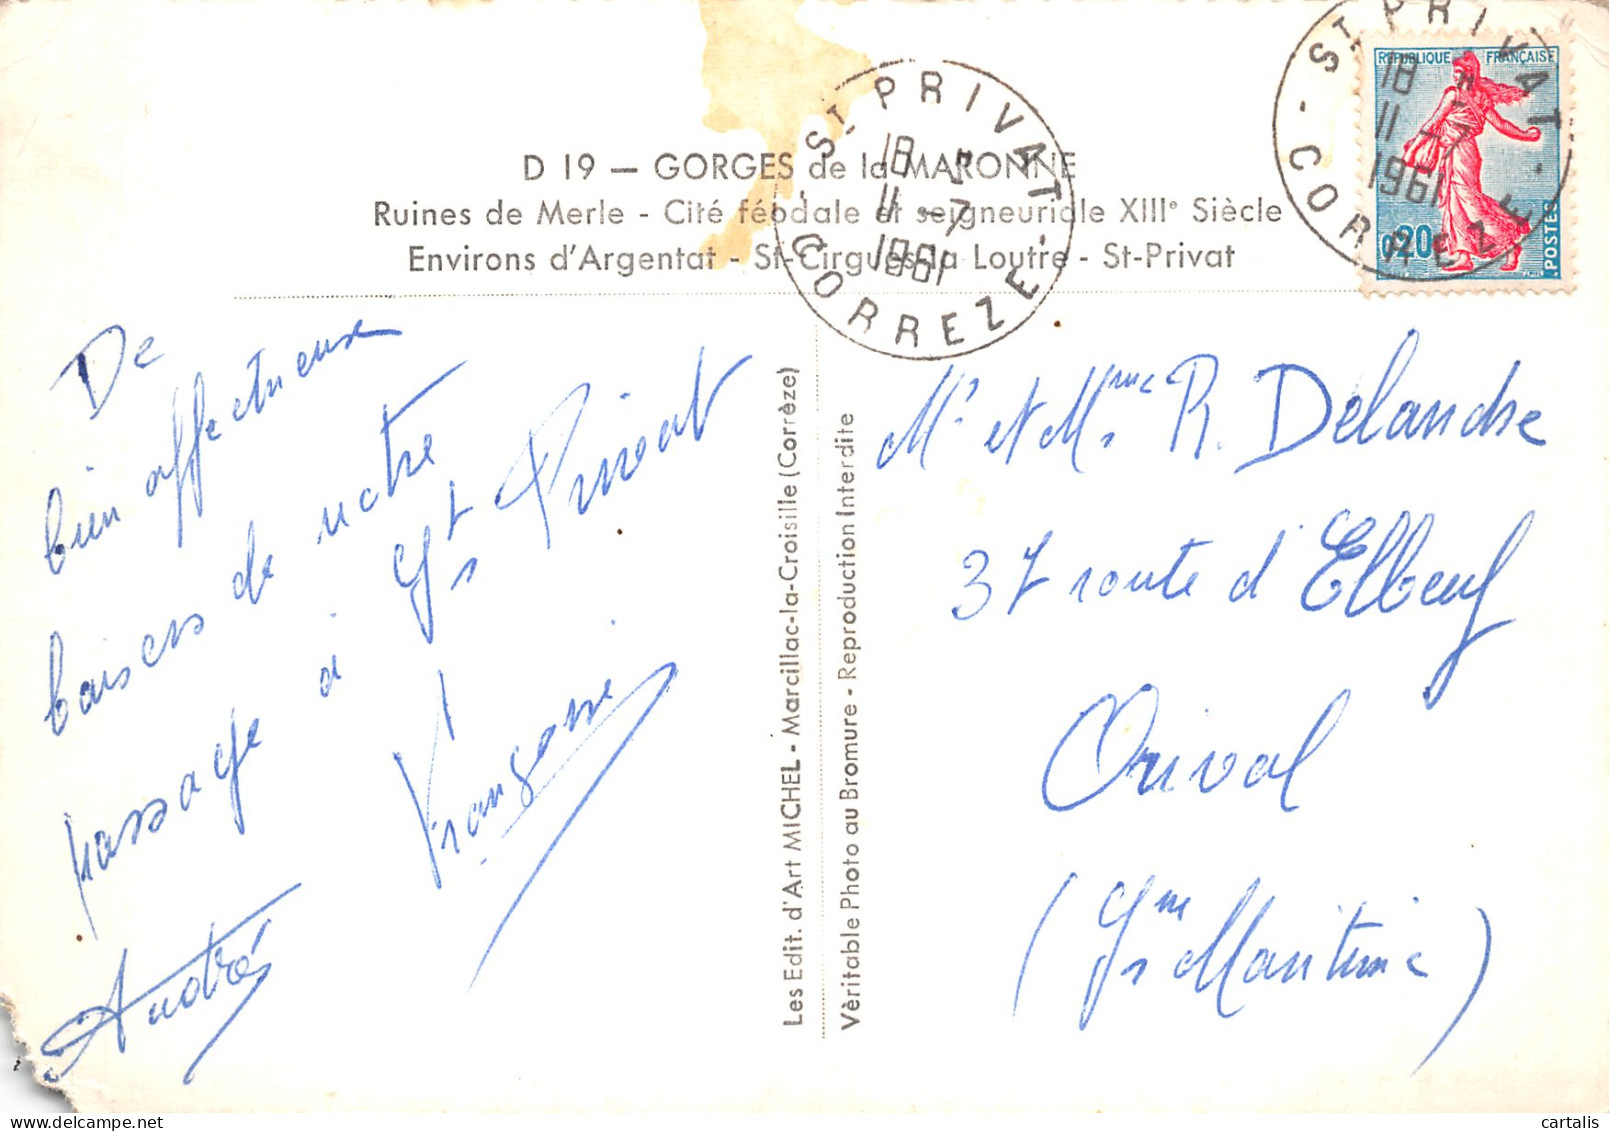 D 19 — GORGES de la MARONNE
Ruines de Merle - Cité féodale et seigneuriale XIIIe Siècle
Environs d'Argentat - St-Cirgues-la Loutre - St-Privat
ST PRIVAT
18 H
11 - 7
1961
- CORREZE -
ST PRIVAT
18 H
11 - 7
1961
- CORREZE -
REPUBLIQUE FRANÇAISE
0,20
POSTES
De
bien affectueux
baisers de notre
passage à St Privat
Françoise
André
Les Edit. d'Art MICHEL - Marcillac-la-Croisille (Corrèze)
Vèritable Photo au Bromure - Reproduction Interdite
Mr et Mme R. Delandre
37 route d'Elbeuf
Orival
(Sne Maritime)
cartalis